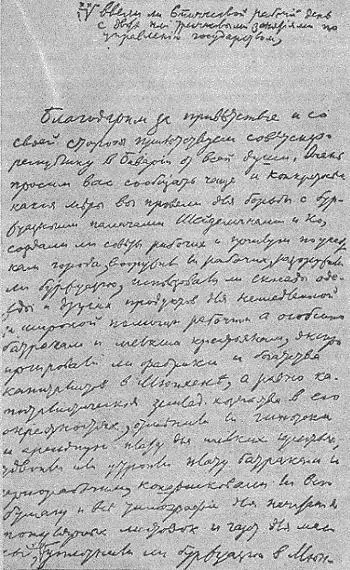 ввели ли 6тичасовой рабочий день
с двух или тричасовыми занятиями по
управлению государством,
Благодарим за приветствие и со
своей стороны приветствуем советскую
республику в Баварии от всей души. Очень
просим вас сообщать чаще и конкретнее
какие меры вы провели для борьбы с бур-
жуазными палачами Шейдеманами и Ко,
создали ли советы рабочих и прислуги по участ-
кам города, вооружили ли рабочих, разоружили
ли буржуазию, использовали ли склады оде-
жды и других продуктов для немедленной
и широкой помощи рабочим а особенно
батракам и мелким крестьянам, экспро-
приировали ли фабрики и богатства
капиталистов в Мюнхене, а равно ка-
питалистические землед. хозяйства в его
окрестностях, отменили ли ипотеки
и арендную плату для мелких крестьян,
удвоили или утроили плату батракам и
чернорабочим, конфисковали ли всю
бумагу и все типографии для печатания
популярных листовок и газет для мас-
сы, уплотнили ли буржуазию в Мюн-